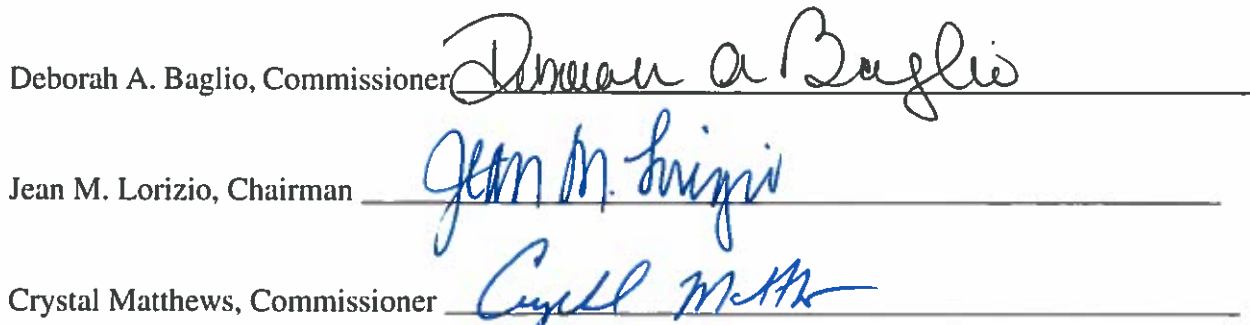 Deborah A. Baglio, Commissioner Deborah A Baglio
Jean M. Lorizio, Chairman Jean M. Lorizio
Crystal Matthews, Commissioner Crystal Matth